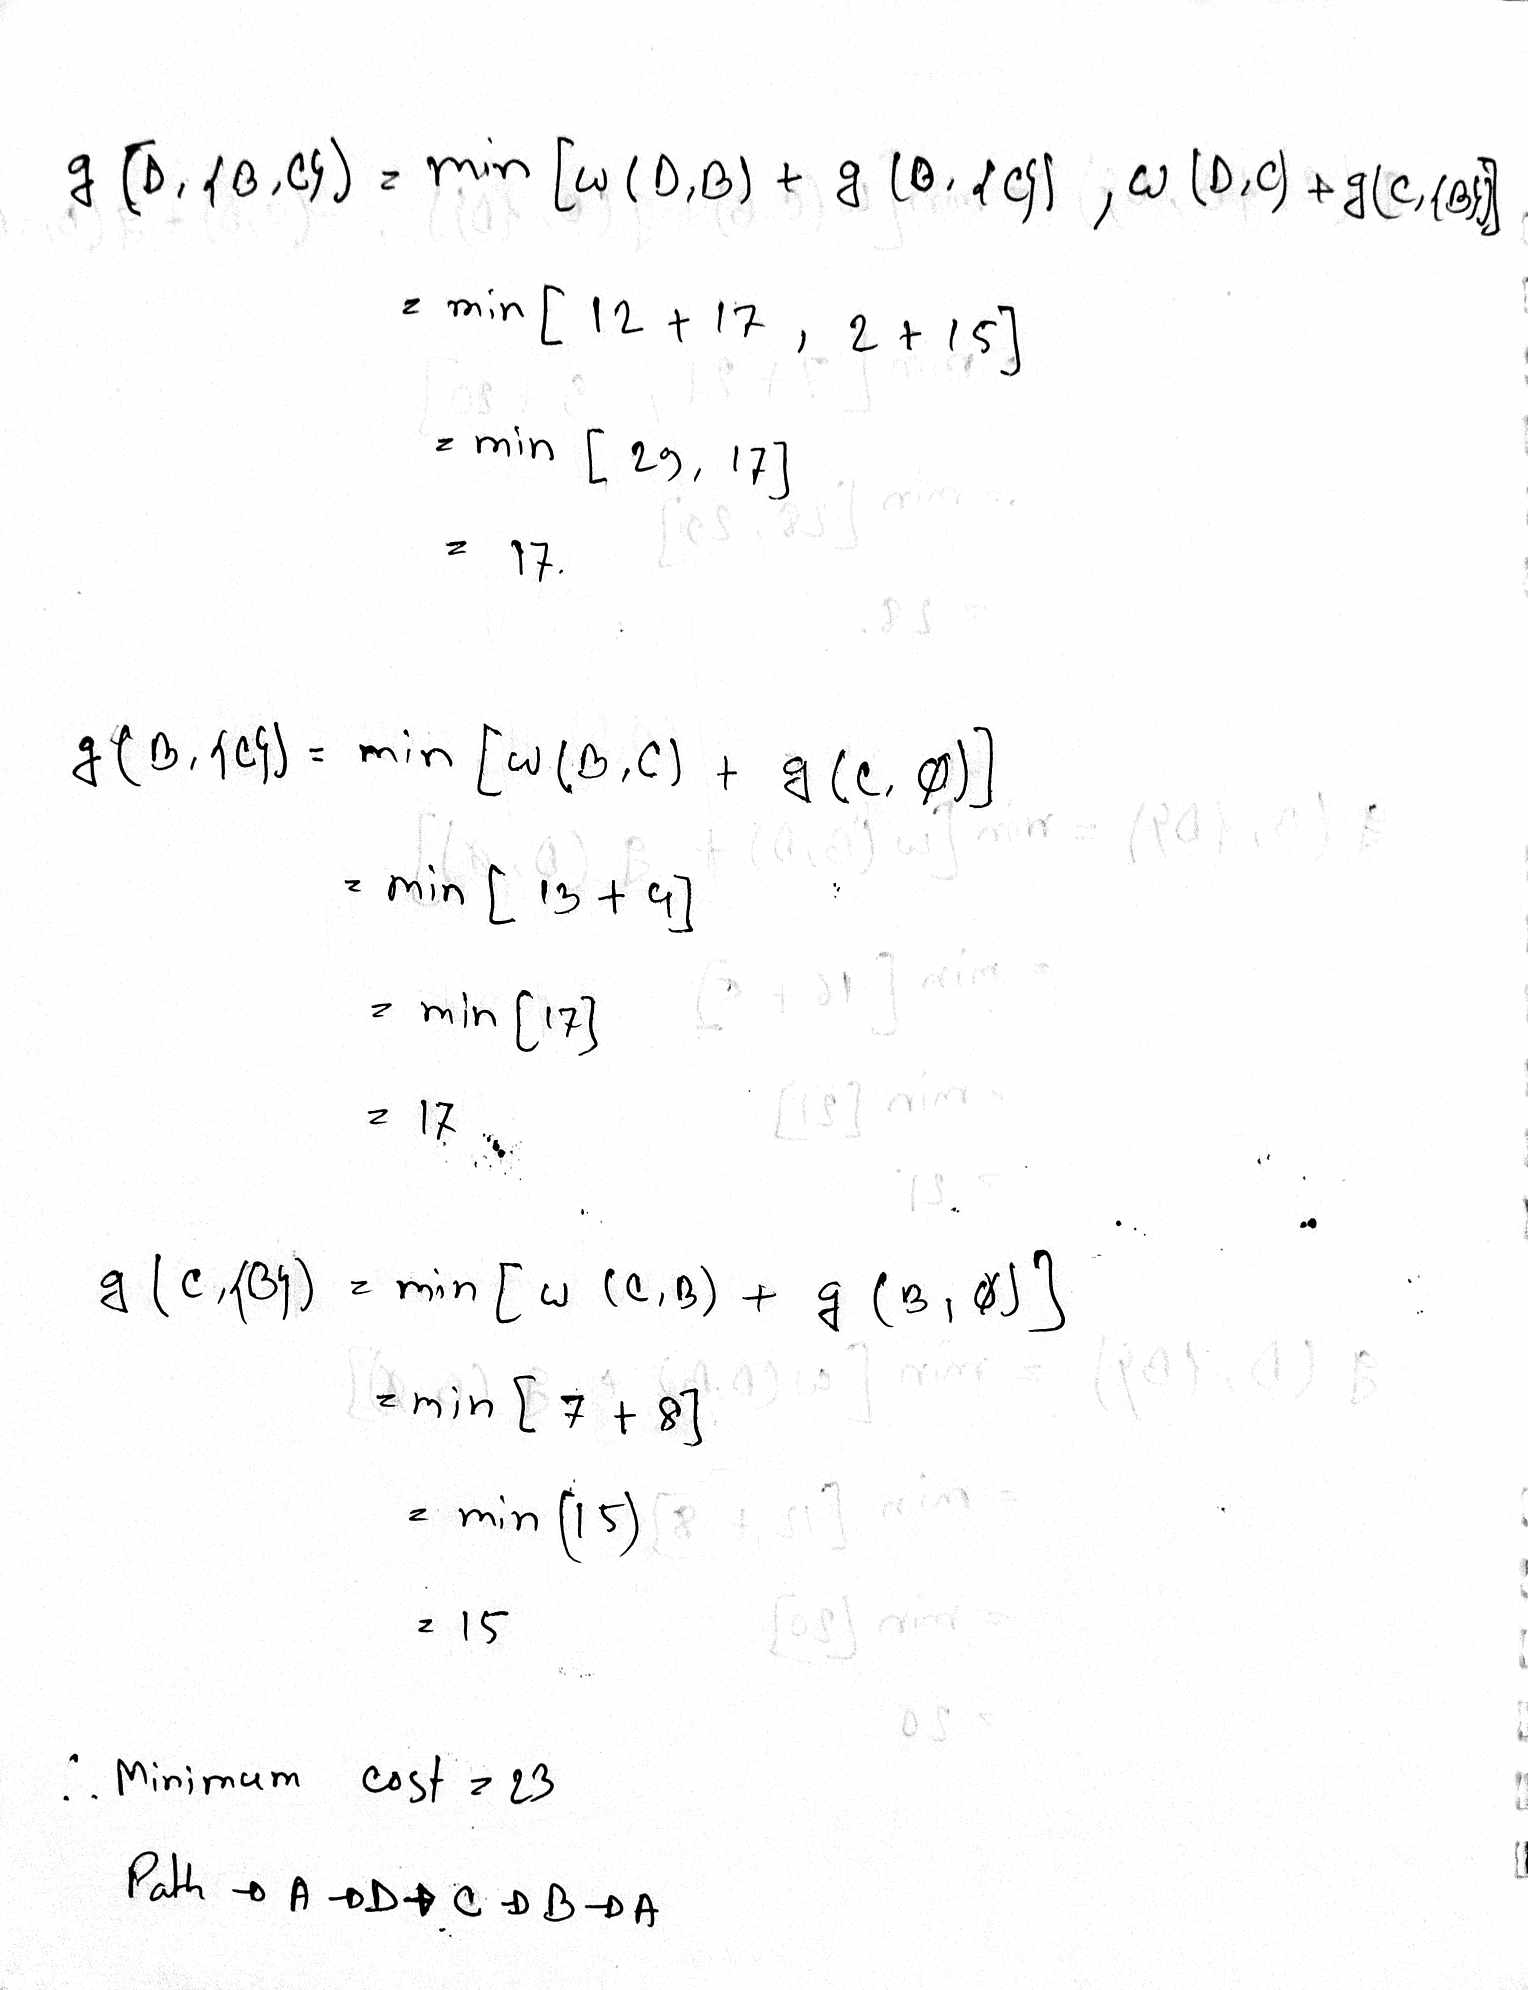 g (D, {B,C}) = min [w(D,B) + g (B, {C}) , w (D,C) + g(C,{B})]
= min [ 12 + 17 , 2 + 15]
= min [ 29, 17]
= 17.
g(B, {C}) = min [w(B,C) + g (C, ∅)]
= min [ 13 + 4]
= min [17]
= 17
g (C,{B}) = min [ w (C,B) + g (B, ∅)]
= min [ 7 + 8]
= min (15)
= 15
∴ Minimum cost = 23
Path → A → D → C → B → A